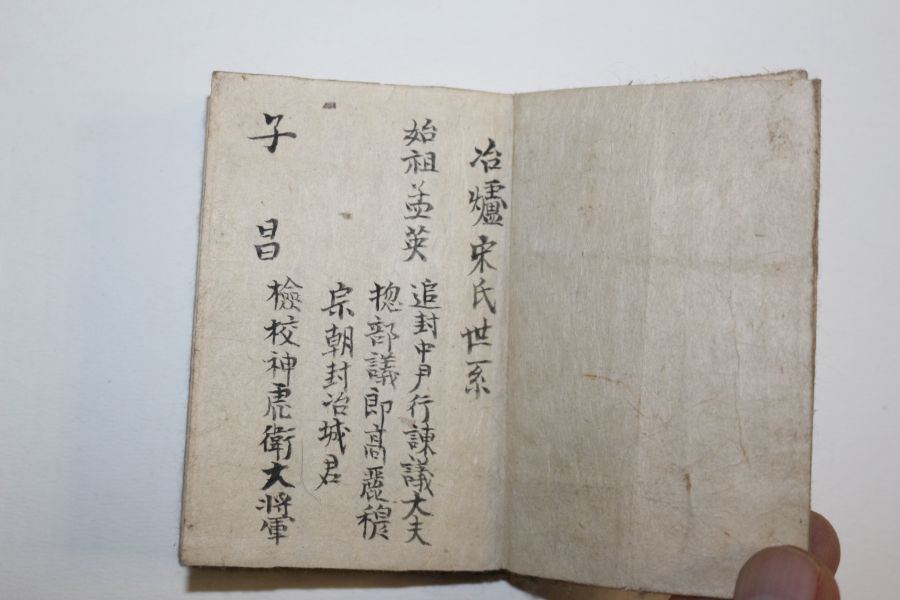 冶爐宋氏世系
始祖孟英 追封中尹行諫議大夫
揔部議郎高麗穆
宗朝封冶城君
子昌 檢校神虎衛大將軍